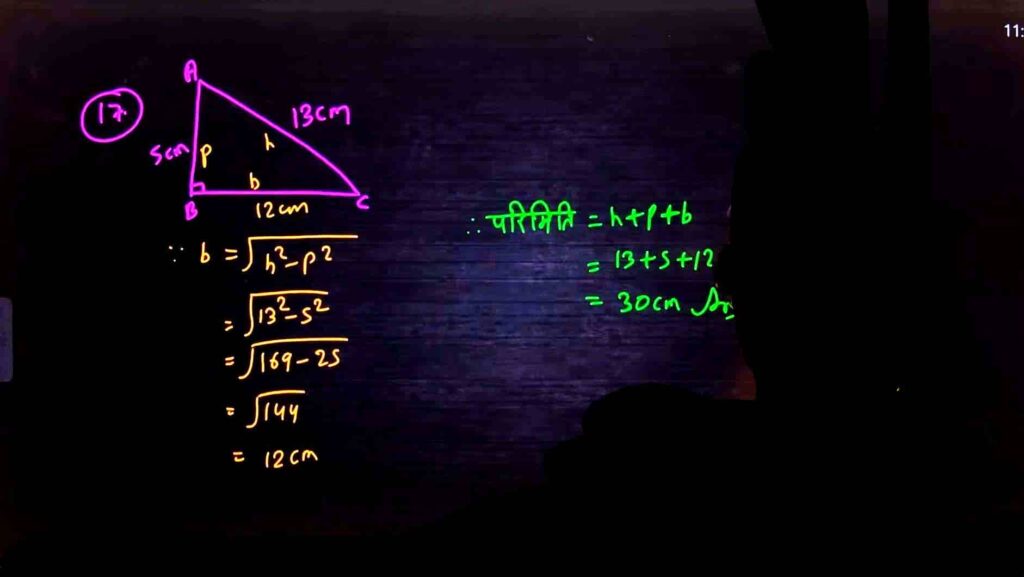 11:
17.
A
13cm
h
5cm
p
b
B
12cm
C
∵ b = √h²-p²
= √13²-5²
= √169-25
= √144
= 12cm
∴ परिमिति = h+p+b
= 13+5+12
= 30cm